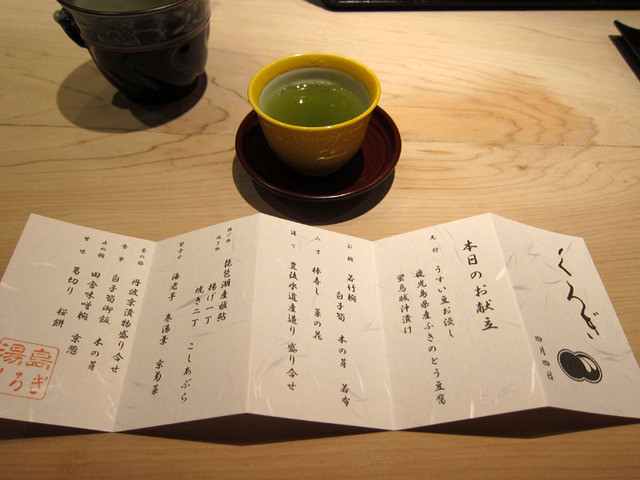 くろぎ
四月四日
本日のお献立
先付 うすい豆お浸し
鹿児島県産ふきのとう豆腐
蛍烏賊沖漬け
お椀 若竹椀
白子筍 木の芽 若布
八寸 棒寿し 菜の花
造り 豊後水道産造り盛り合せ
揚げ物
焼き物 琵琶湖産稚鮎
揚げ一丁 こしあぶら
焼き二丁
海老芋 巻湯葉 京菊菜
香の物 丹波京漬物盛り合せ
食事 白子筍御飯 木の芽
止め椀 田舎味噌椀 京葱
甘味 葛切り 桜餅
湯島
くろぎ